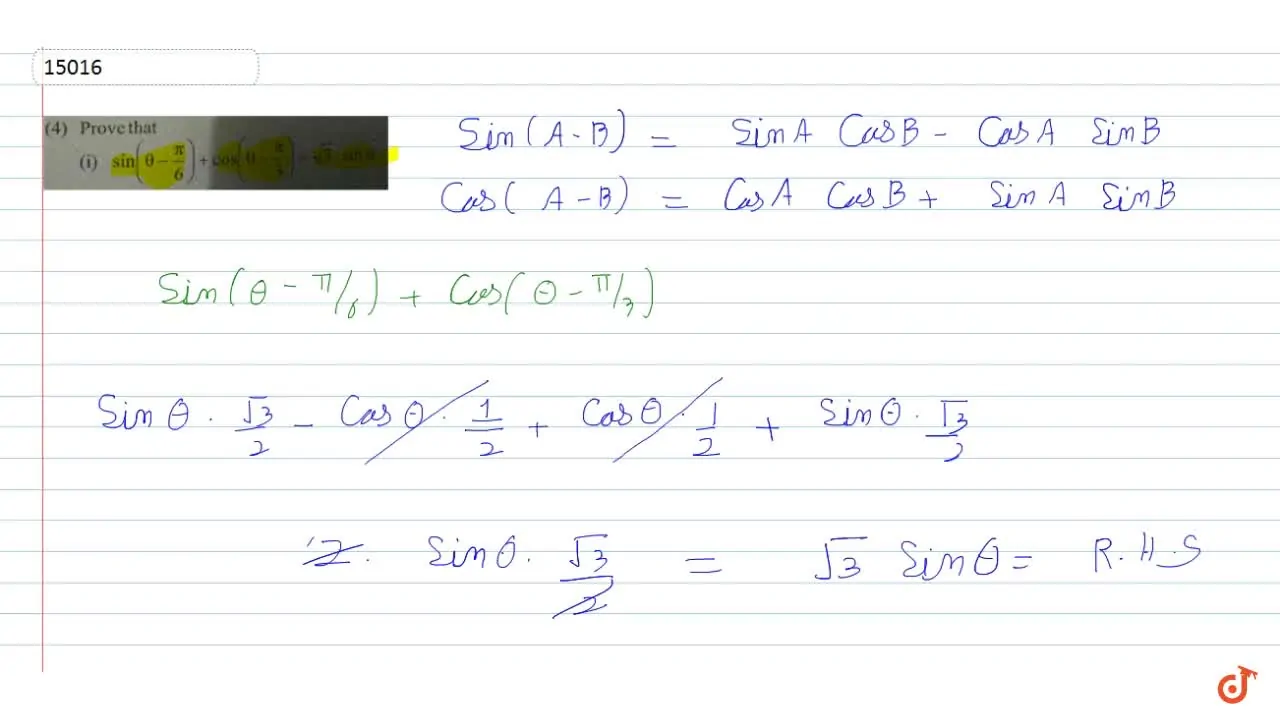 15016
(4) Prove that
(i) sin(θ − π/6) + cos(θ − π/3) = √3 sin θ
Sin(A - B) = SinA CosB - CosA SinB
Cos(A - B) = CosA CosB + SinA SinB
Sin(θ - π/6) + Cos(θ - π/3)
Sinθ · √3/2 - Cosθ · 1/2 + Cosθ · 1/2 + Sinθ · √3/2
2. Sinθ. √3/2 = √3 Sinθ = R.H.S